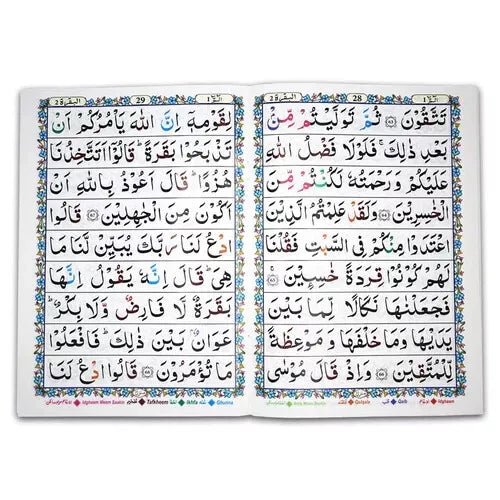 البقرة ٢
28
الم ١
تَتَّقُوْنَ ﴿۶۳﴾ ثُمَّ تَوَلَّيْتُمْ مِّنْۢ
بَعْدِ ذٰلِكَ ۚ فَلَوْلَا فَضْلُ اللّٰهِ
عَلَيْكُمْ وَرَحْمَتُهٗ لَكُنْتُمْ مِّنَ
الْخٰسِرِيْنَ ﴿۶۴﴾ وَلَقَدْ عَلِمْتُمُ الَّذِيْنَ
اعْتَدَوْا مِنْكُمْ فِى السَّبْتِ فَقُلْنَا
لَهُمْ كُوْنُوْا قِرَدَةً خٰسِـِٕيْنَ ﴿۶۵﴾
فَجَعَلْنٰهَا نَكَالًا لِّمَا بَيْنَ
يَدَيْهَا وَمَا خَلْفَهَا وَمَوْعِظَةً
لِّلْمُتَّقِيْنَ ﴿۶۶﴾ وَاِذْ قَالَ مُوْسٰى
Idgham Meem Saakin Qalqala Qalb Idgham
البقرة ٢
29
الم ١
لِقَوْمِهٖۤ اِنَّ اللّٰهَ يَاْمُرُكُمْ اَنْ
تَذْبَحُوْا بَقَرَةً ؕ قَالُوْۤا اَتَتَّخِذُنَا
هُزُوًا ؕ قَالَ اَعُوْذُ بِاللّٰهِ اَنْ
اَكُوْنَ مِنَ الْجٰهِلِيْنَ ﴿۶۷﴾ قَالُوا
ادْعُ لَنَا رَبَّكَ يُبَيِّنْ لَّنَا مَا
هِىَ ؕ قَالَ اِنَّهٗ يَقُوْلُ اِنَّهَا
بَقَرَةٌ لَّا فَارِضٌ وَّلَا بِكْرٌ ؕ
عَوَانٌۢ بَيْنَ ذٰلِكَ ؕ فَافْعَلُوْا
مَا تُؤْمَرُوْنَ ﴿۶۸﴾ قَالُوا ادْعُ لَنَا
Idgham Meem Saakin Tafkheem Ikhfa Ghunna